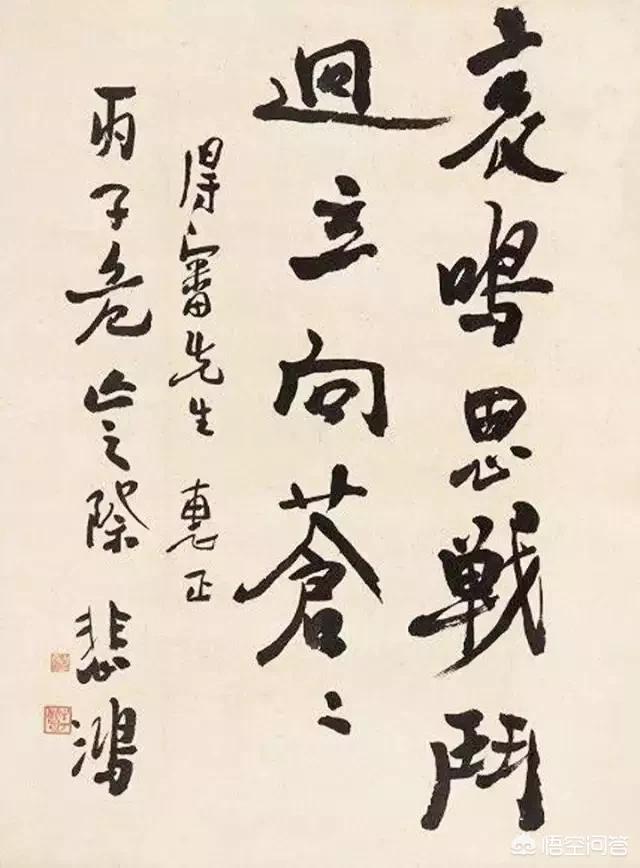 哀鳴思戰鬥
迥立向蒼〻
得審先生 惠正
丙子危亡之際 悲鴻
悟空问答